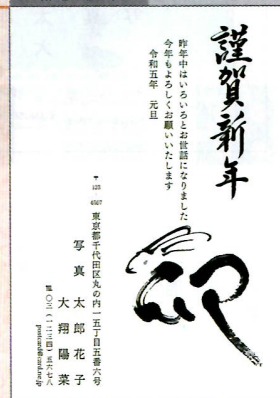 謹賀新年
昨年中はいろいろとお世話になりました
今年もよろしくお願いいたします
令和五年　元旦
卯
〒123-4567
東京都千代田区丸の内一五丁目五番六号
写真　太郎花子
大翔陽菜
℡〇三（一二三四）五六七八
postcard@card.ne.jp